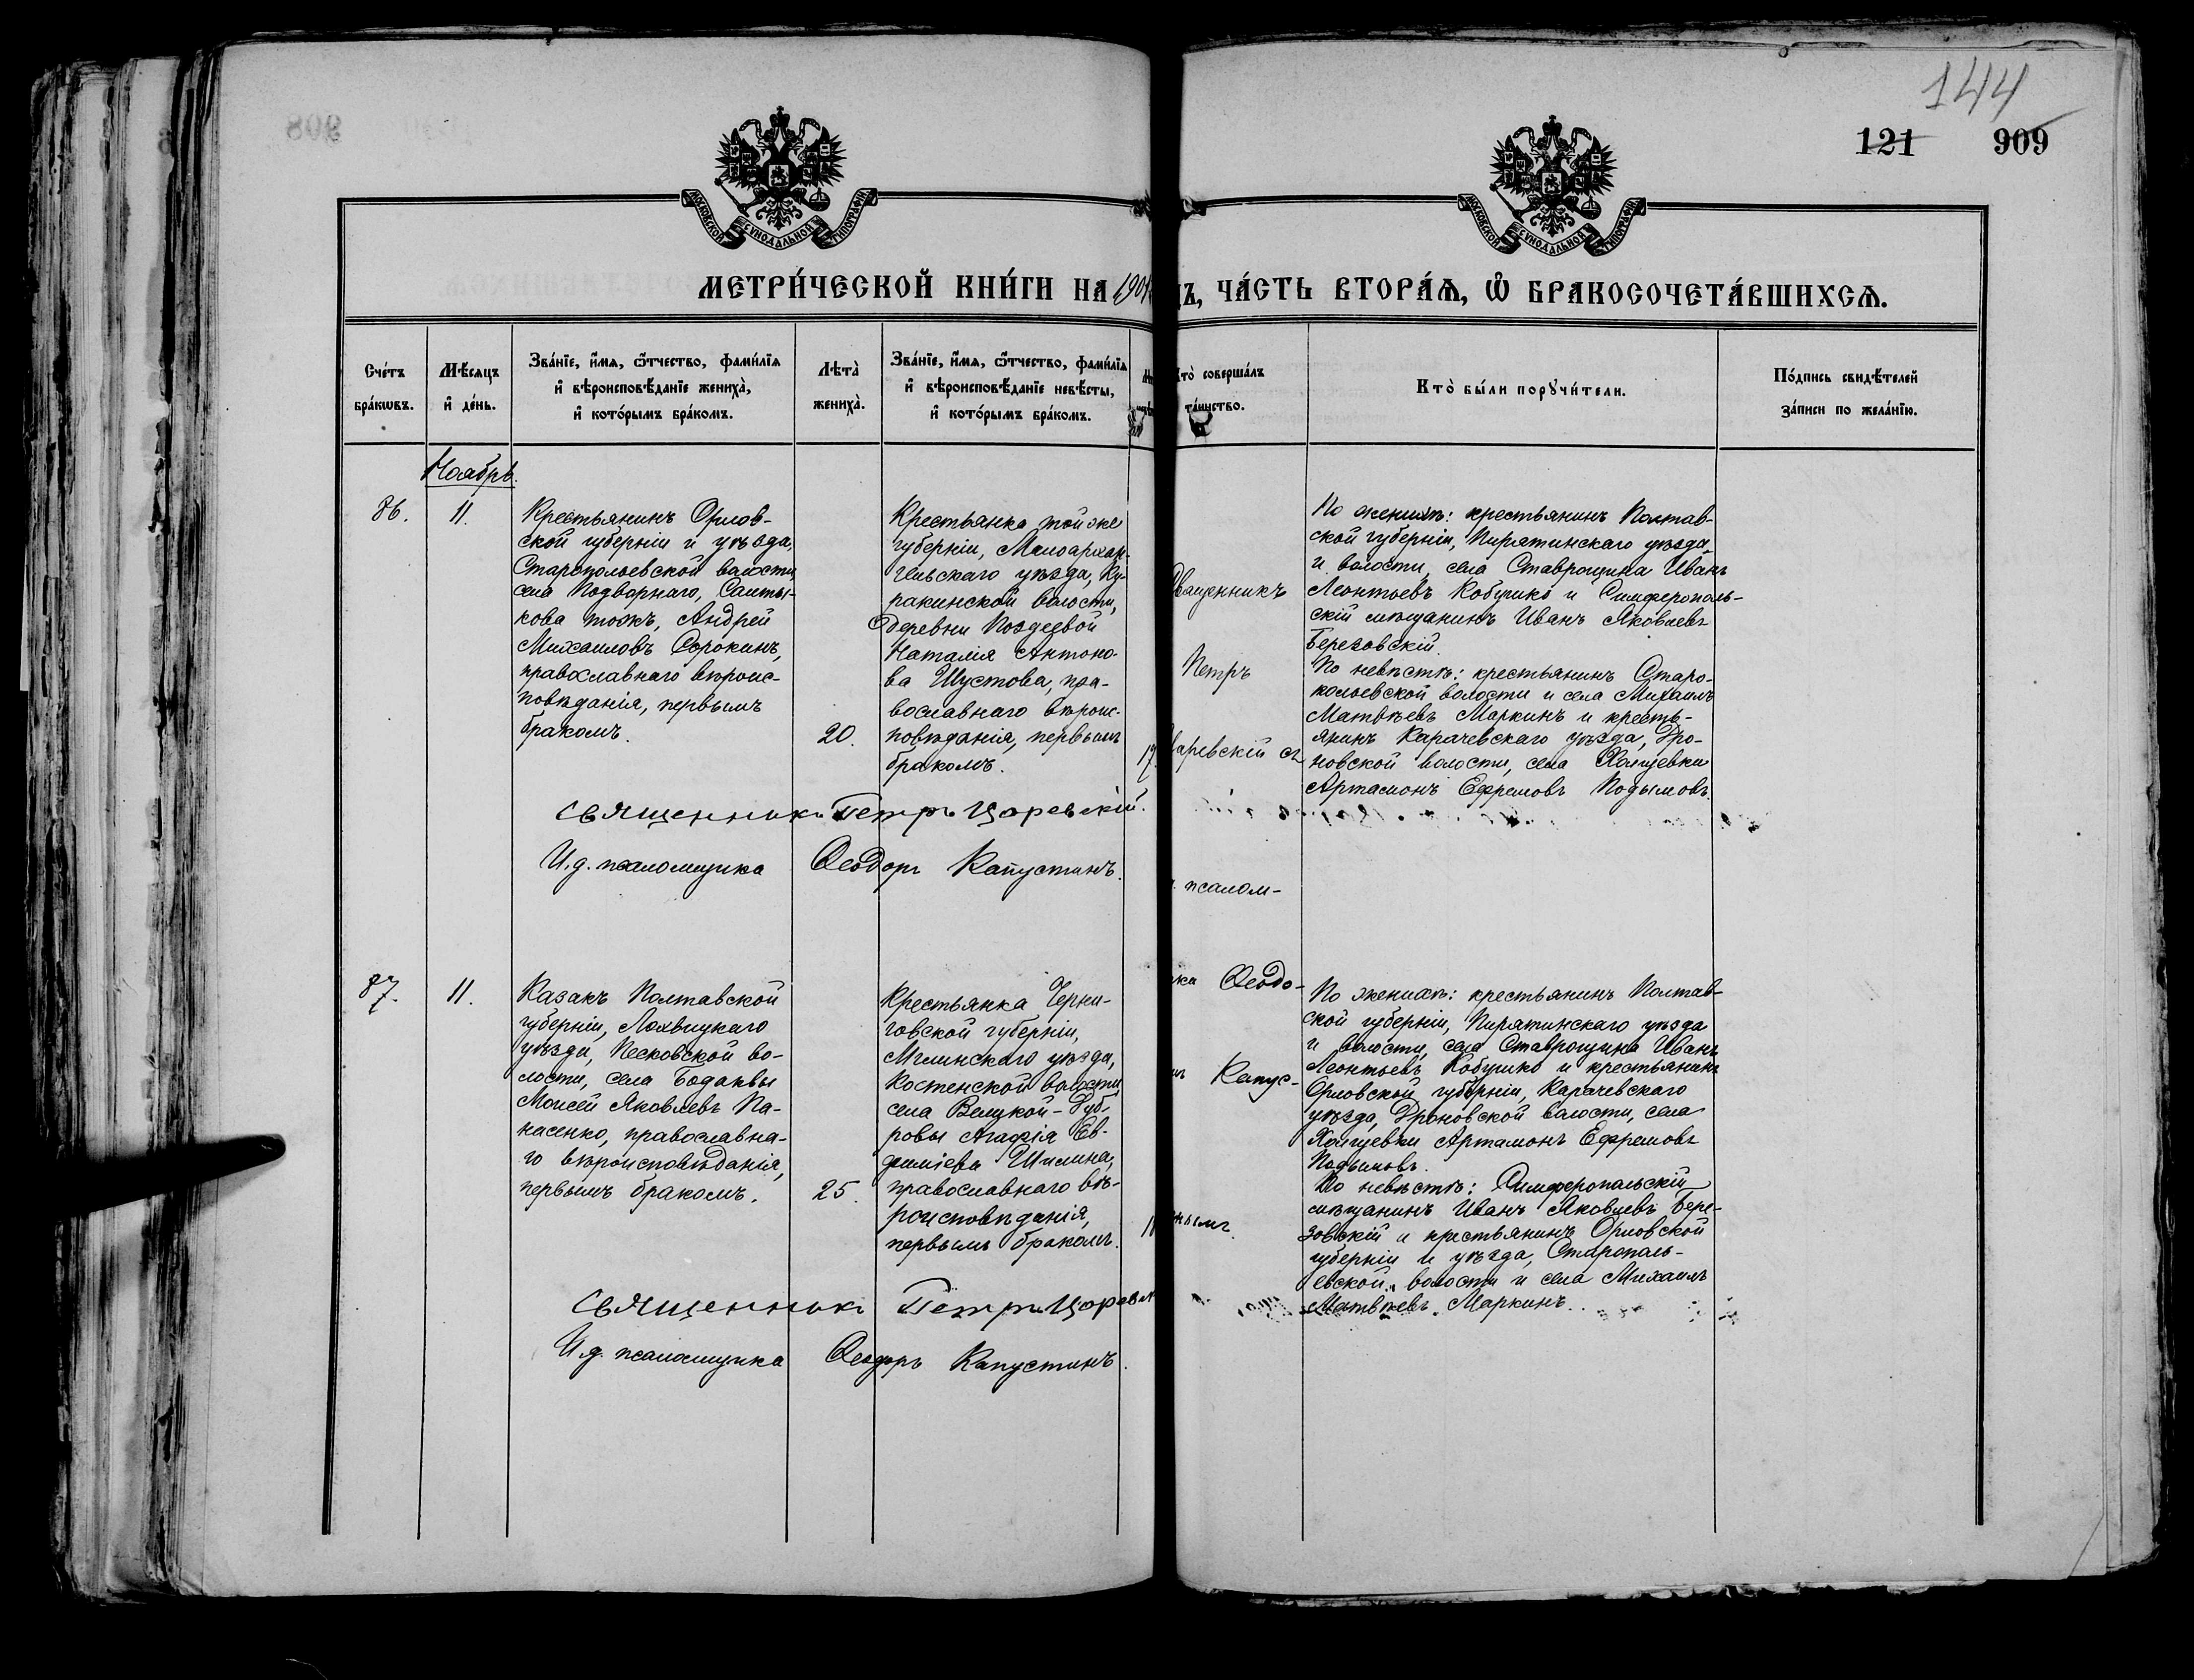 144
121 909
МОСКОВСКОЙ СѴНОДАЛЬНОЙ ТИПОГРАФІИ
МОСКОВСКОЙ СѴНОДАЛЬНОЙ ТИПОГРАФІИ
МЕТРИ́ЧЕСКОЙ КНИ́ГИ НА 190
Ъ, ЧА́СТЬ ВТОРА́Ѧ, Ѽ БРАКОСОЧЕТА́ВШИХСѦ.
Сче́тъ
бра́кѡвъ.
Мѣ́сяцъ
и҆ де́нь.
Зва́нїе, и҆́мѧ, ѻ҆́тчество, фами́лїѧ
и҆ вѣроисповѣ́данїе жениха̀,
и҆ кото́рымъ бра́комъ.
Лѣта̀
жениха̀.
Зва́нїе, и҆́мѧ, ѻ҆́тчество, фами́лїѧ
и҆ вѣроисповѣ́данїе невѣ́сты,
и҆ кото́рымъ бра́комъ.
Кто̀ соверша́лъ
та́инство.
Кто̀ бы́ли порꙋчи́тели.
По́дпись свидѣ́телей
за́писи по жела́нїю.
Ноябрь.
86.
11.
Крестьянинъ Орлов-
ской губерніи и уѣзда,
Старопольевской волости,
села Подворнаго, Салты-
кова тожъ, Андрей
Михаиловъ Сорокинъ,
православнаго вѣроис-
повѣданія, первымъ
бракомъ.
20.
Крестьянка той же
губерніи, Малоархан-
гельскаго уѣзда, Ку-
ракинской волости,
деревни Поздеевой
Наталія Антоно-
ва Шустова, пра-
вославнаго вѣроис-
повѣданія, первымъ
бракомъ.
17.
Священникъ
Петръ
Царевскій съ
По женихѣ: крестьянинъ Полтав-
ской губерніи, Пирятинскаго уѣзда,
и волости, села Ставрощина Иванъ
Леонтьевъ Кобушко и Симферополь-
скій мѣщанинъ Иванъ Яковлевъ
Березовскій.
По невѣстѣ: крестьянинъ Старо-
польевской волости и села Михаилъ
Матвѣевъ Маркинъ и кресть-
янинъ Карачевскаго уѣзда, Дро-
новской волости, села Холщевки
Артамонъ Ефремовъ Подымовъ.
Священникъ Петръ Царевскій.
И.д. псаломщика Ѳеодоръ Капустинъ.
псалом-
87.
11.
Казакъ Полтавской
губерніи, Лохвицкаго
уѣзда, Песковской во-
лости, села Бодаквы
Моисей Яковлевъ Па-
насенко, православна-
го вѣроисповѣданія,
первымъ бракомъ.
25.
Крестьянка Черни-
говской губерніи,
Мглинскаго уѣзда,
Костенской волости
села Великой-Дуб-
ровы Агафія Ев-
фиміева Шилина,
православнаго вѣ-
роисповѣданія,
первымъ бракомъ.
ка Ѳеодо-
Капус-
нымъ.
По женихѣ: крестьянинъ Полтав-
ской губерніи, Пирятинскаго уѣзда
и волости, села Ставрощина Иванъ
Леонтьевъ Кобушко и крестьянинъ
Орловской губерніи, Карачевскаго
уѣзда, Дроновской волости, села
Холщевки Артамонъ Ефремовъ
Подымовъ.
По невѣстѣ: Симферопольскій
мѣщанинъ Иванъ Яковлевъ Бере-
зовскій и крестьянинъ Орловской
губерніи и уѣзда, Старополь-
евской волости и села Михаилъ
Матвѣевъ Маркинъ.
Священникъ Петръ Царевск
И.д. псаломщика Ѳеодоръ Капустинъ.